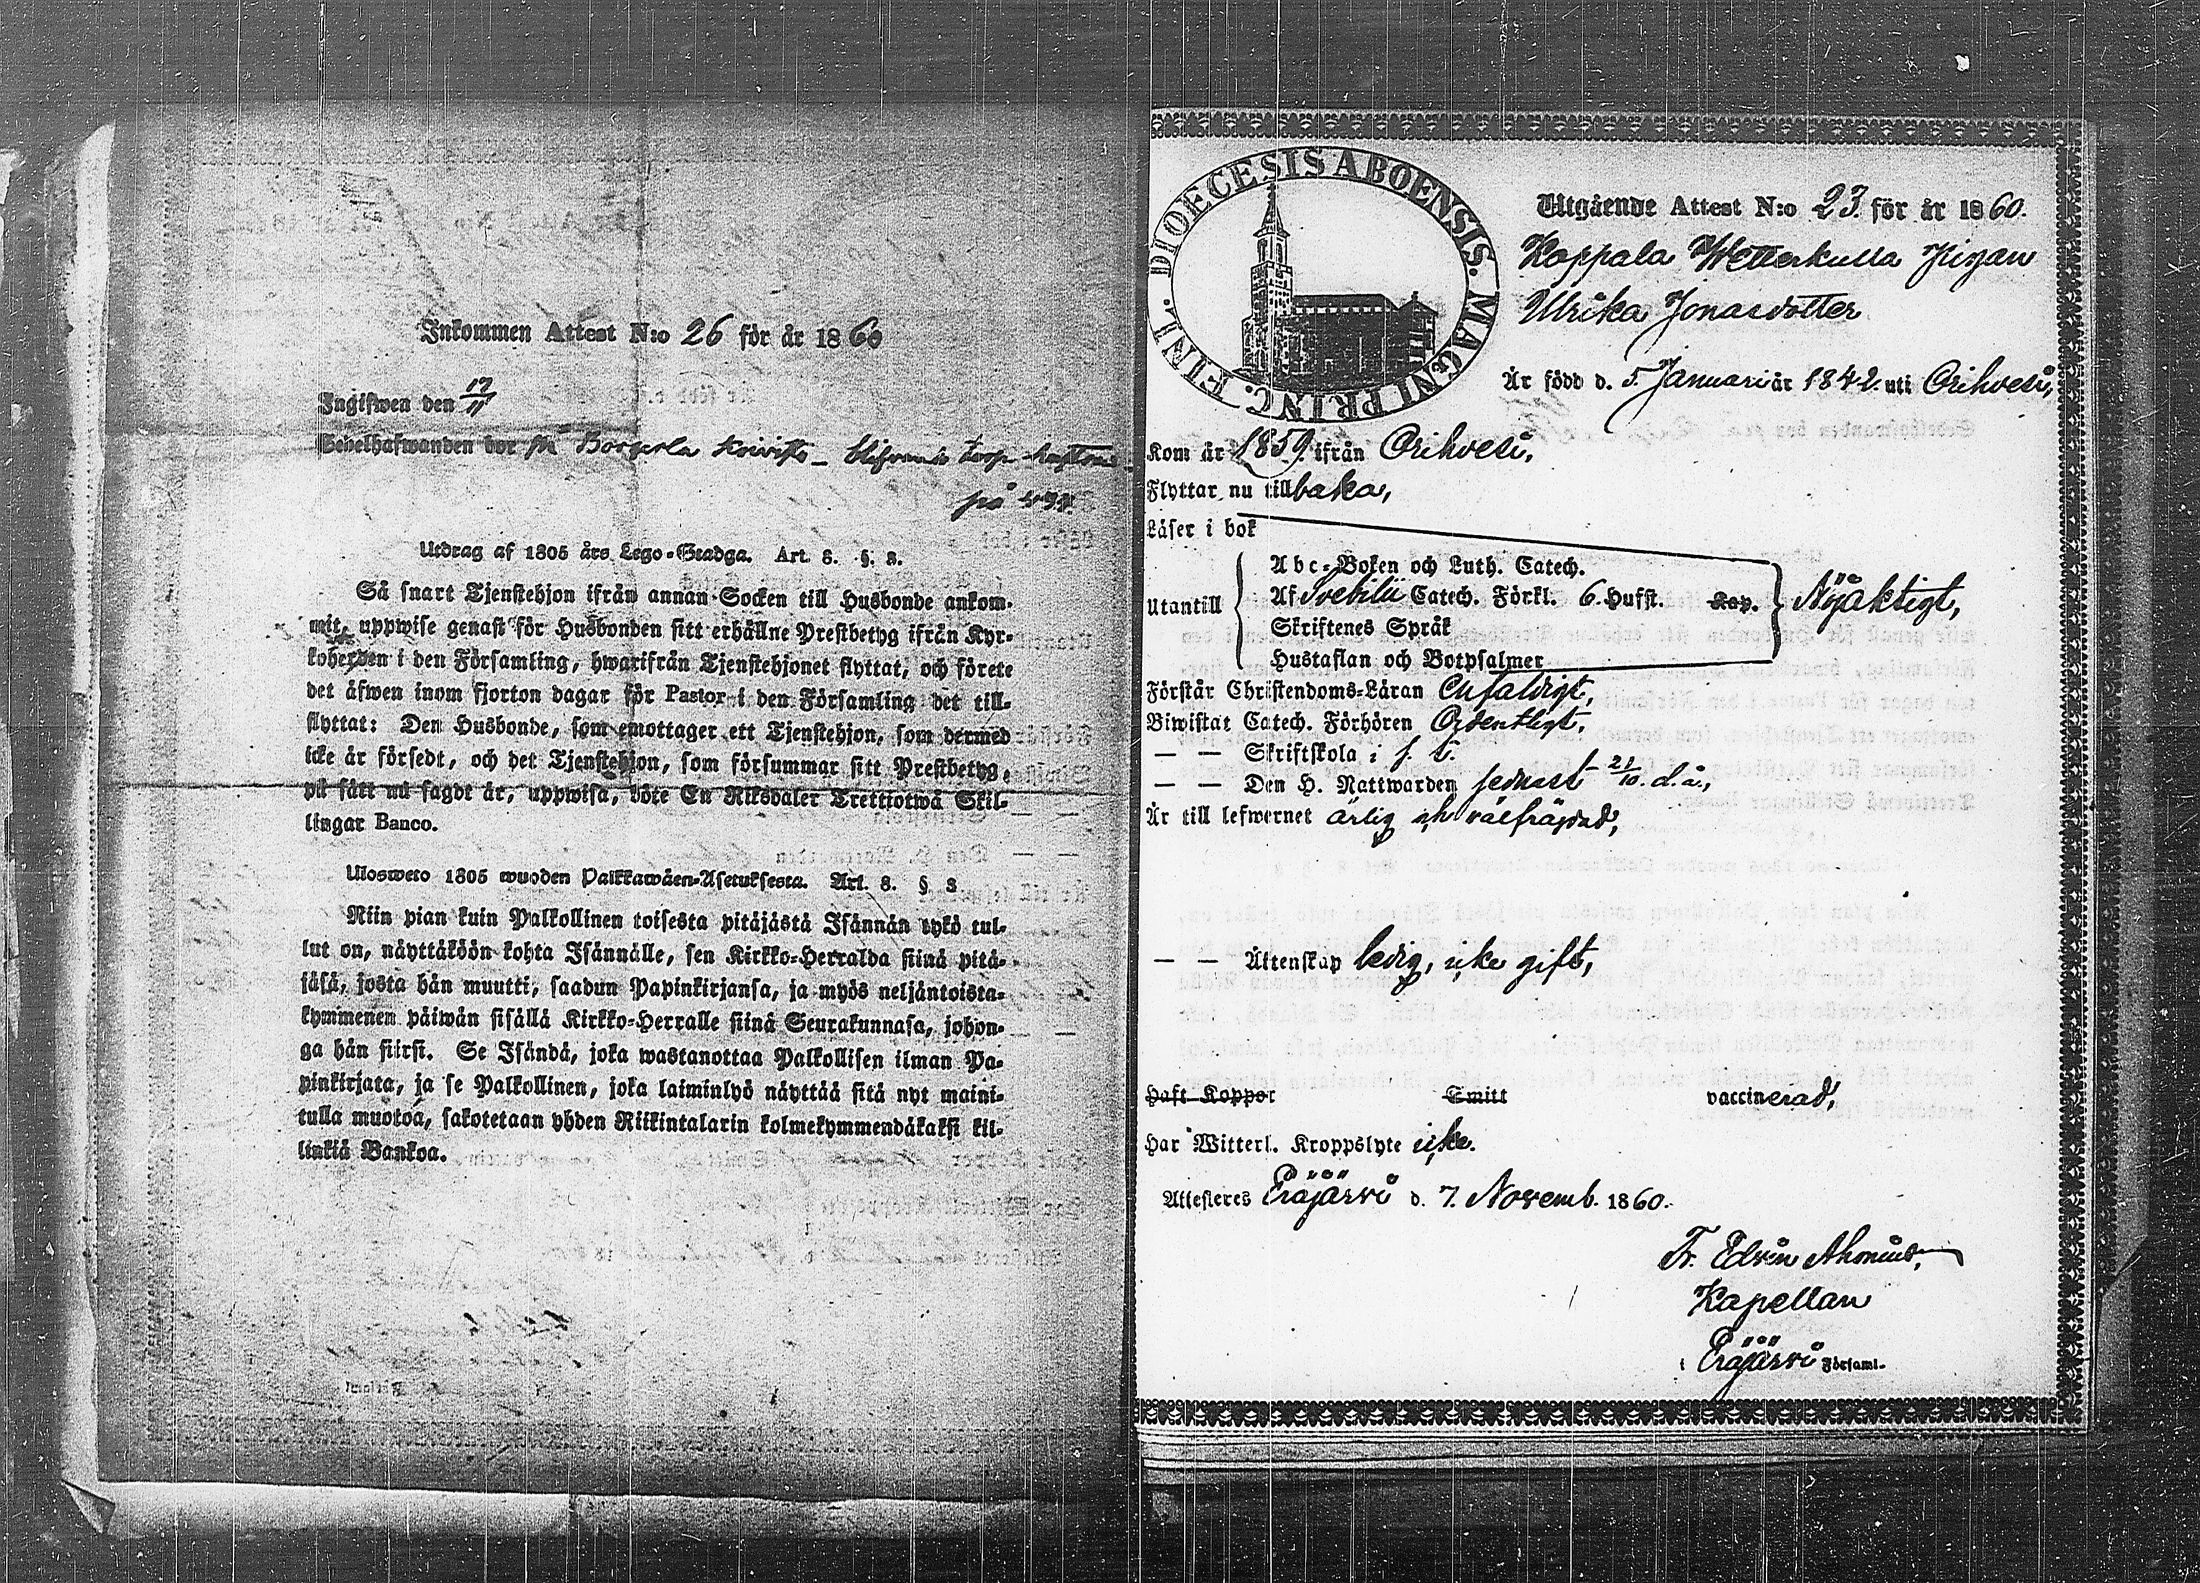 Inkommen Attest N:o 26 för år 1860
Ingifwen den 17/11
Bebelhafwanden bor på Borgerla Koivisto
på
Utdrag af 1805 års Lego-Stadga. Art. 8. §. 3.
Så snart Tjenstehjon ifrån annan Socken till Husbonde ankom-
mit, uppwise genast för Husbonden sitt erhållne Prestbetyg ifrån Kyr-
koherden i den Församling, hwarifrån Tjenstehjonet flyttat, och förete
det äfwen inom fjorton dagar för Pastor i den Församling det till-
flyttat: Den Husbonde, som emottager ett Tjenstehjon, som dermed
icke är försedt, och det Tjenstehjon, som försummar sitt Prestbetyg,
på sätt nu sagdt är, uppwisa, böte En Riksdaler Trettiotwå Skil-
lingar Banco.
Ulosweto 1805 wuoden Palkkawäen-Asetuksesta. Art. 8. § 3.
Niin pian kuin Palkollinen toisesta pitäjästä Isännän tykö tul-
lut on, näyttäköön kohta Isännälle, sen Kirkko-Herralda siinä pitä-
jäsä, josta hän muutti, saadun Papinkirjansa, ja myös neljäntoista-
kymmenen päiwän sisällä Kirkko-Herralle siinä Seurakunnasa, johon-
ga hän siirsi. Se Isändä, joka wastanottaa Palkollisen ilman Pa-
pinkirjata, ja se Palkollinen, joka laiminlyö näyttää sitä nyt maini-
tulla muotoa, sakotetaan yhden Riikintalarin kolmekymmendäkaksi kil-
linkiä Bankoa.
DIOECESIS ABOENSIS. MAGNI PRINC. FINL.
Utgående Attest N:o 23. för år 1860.
Koppala Wetterkulla Pigan
Ulrika Jonasdotter
Är född d. 5 Januari år 1842. uti Orihvesi,
Kom år 1859. ifrån Orihvesi,
Flyttar nu tillbaka,
Läser i bok
Abc-Boken och Luth. Catech.
Utantill Af Svebilii Catech. Förkl. 6. Hufst. Kap. Nöjaktigt,
Skriftenes Språk
Hustaflan och Botpsalmer
Förstår Christendoms-Läran Enfaldigt,
Biwistat Catech. Förhören Ordentligt,
— — Skriftskola i f. t.
— — Den H. Nattwarden sednast 21/10. d. å.,
Är till lefwernet ärlig och välfräjdad,
— — Äktenskap ledig, icke gift,
Haft Koppor Smitt vaccinerad,
Har Witterl. Kroppslyte icke.
Attesteres Eräjärvi d. 7. Novemb. 1860.
Fr. Edvin Ahonius,
Kapellan
i Eräjärvi Församl.